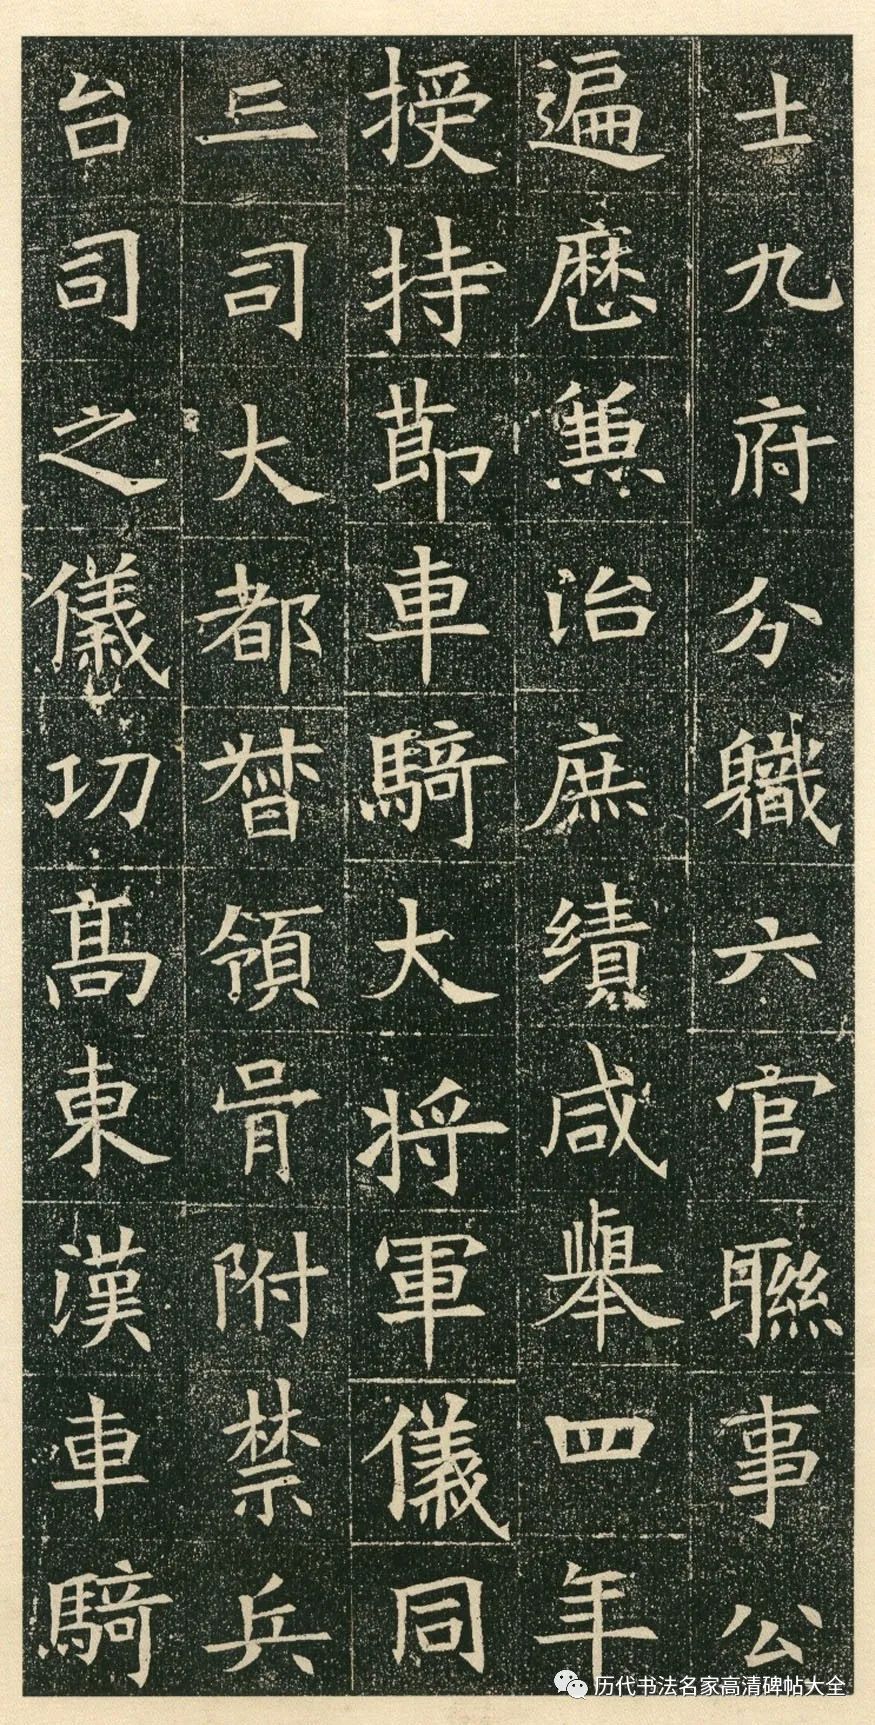 士九府分職六官聯事公
遍歷兼治庶績咸舉四年
授持節車騎大將軍儀同
三司大都督領胥附禁兵
台司之儀功高東漢車騎
历代书法名家高清碑帖大全